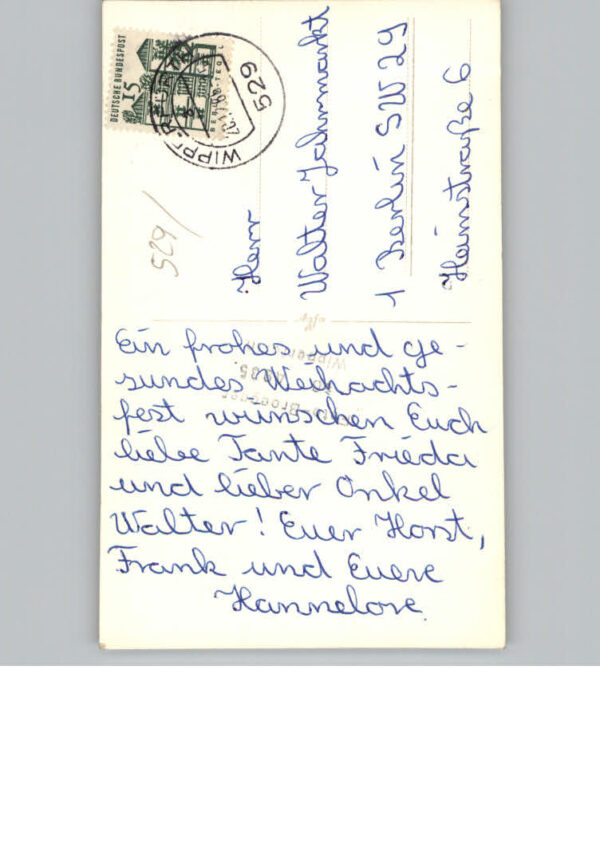 DEUTSCHE BUNDESPOST
15
BERLIN-TEGEL
529
529/
Herr
Walter Jahnmarkt
1 Berlin SW 29
Heimstraße 6
Ein frohes und ge-
sundes Weihachts-
fest wünschen Euch
liebe Tante Frieda
und lieber Onkel
Walter! Euer Horst,
Frank und Euere
Hannelore.